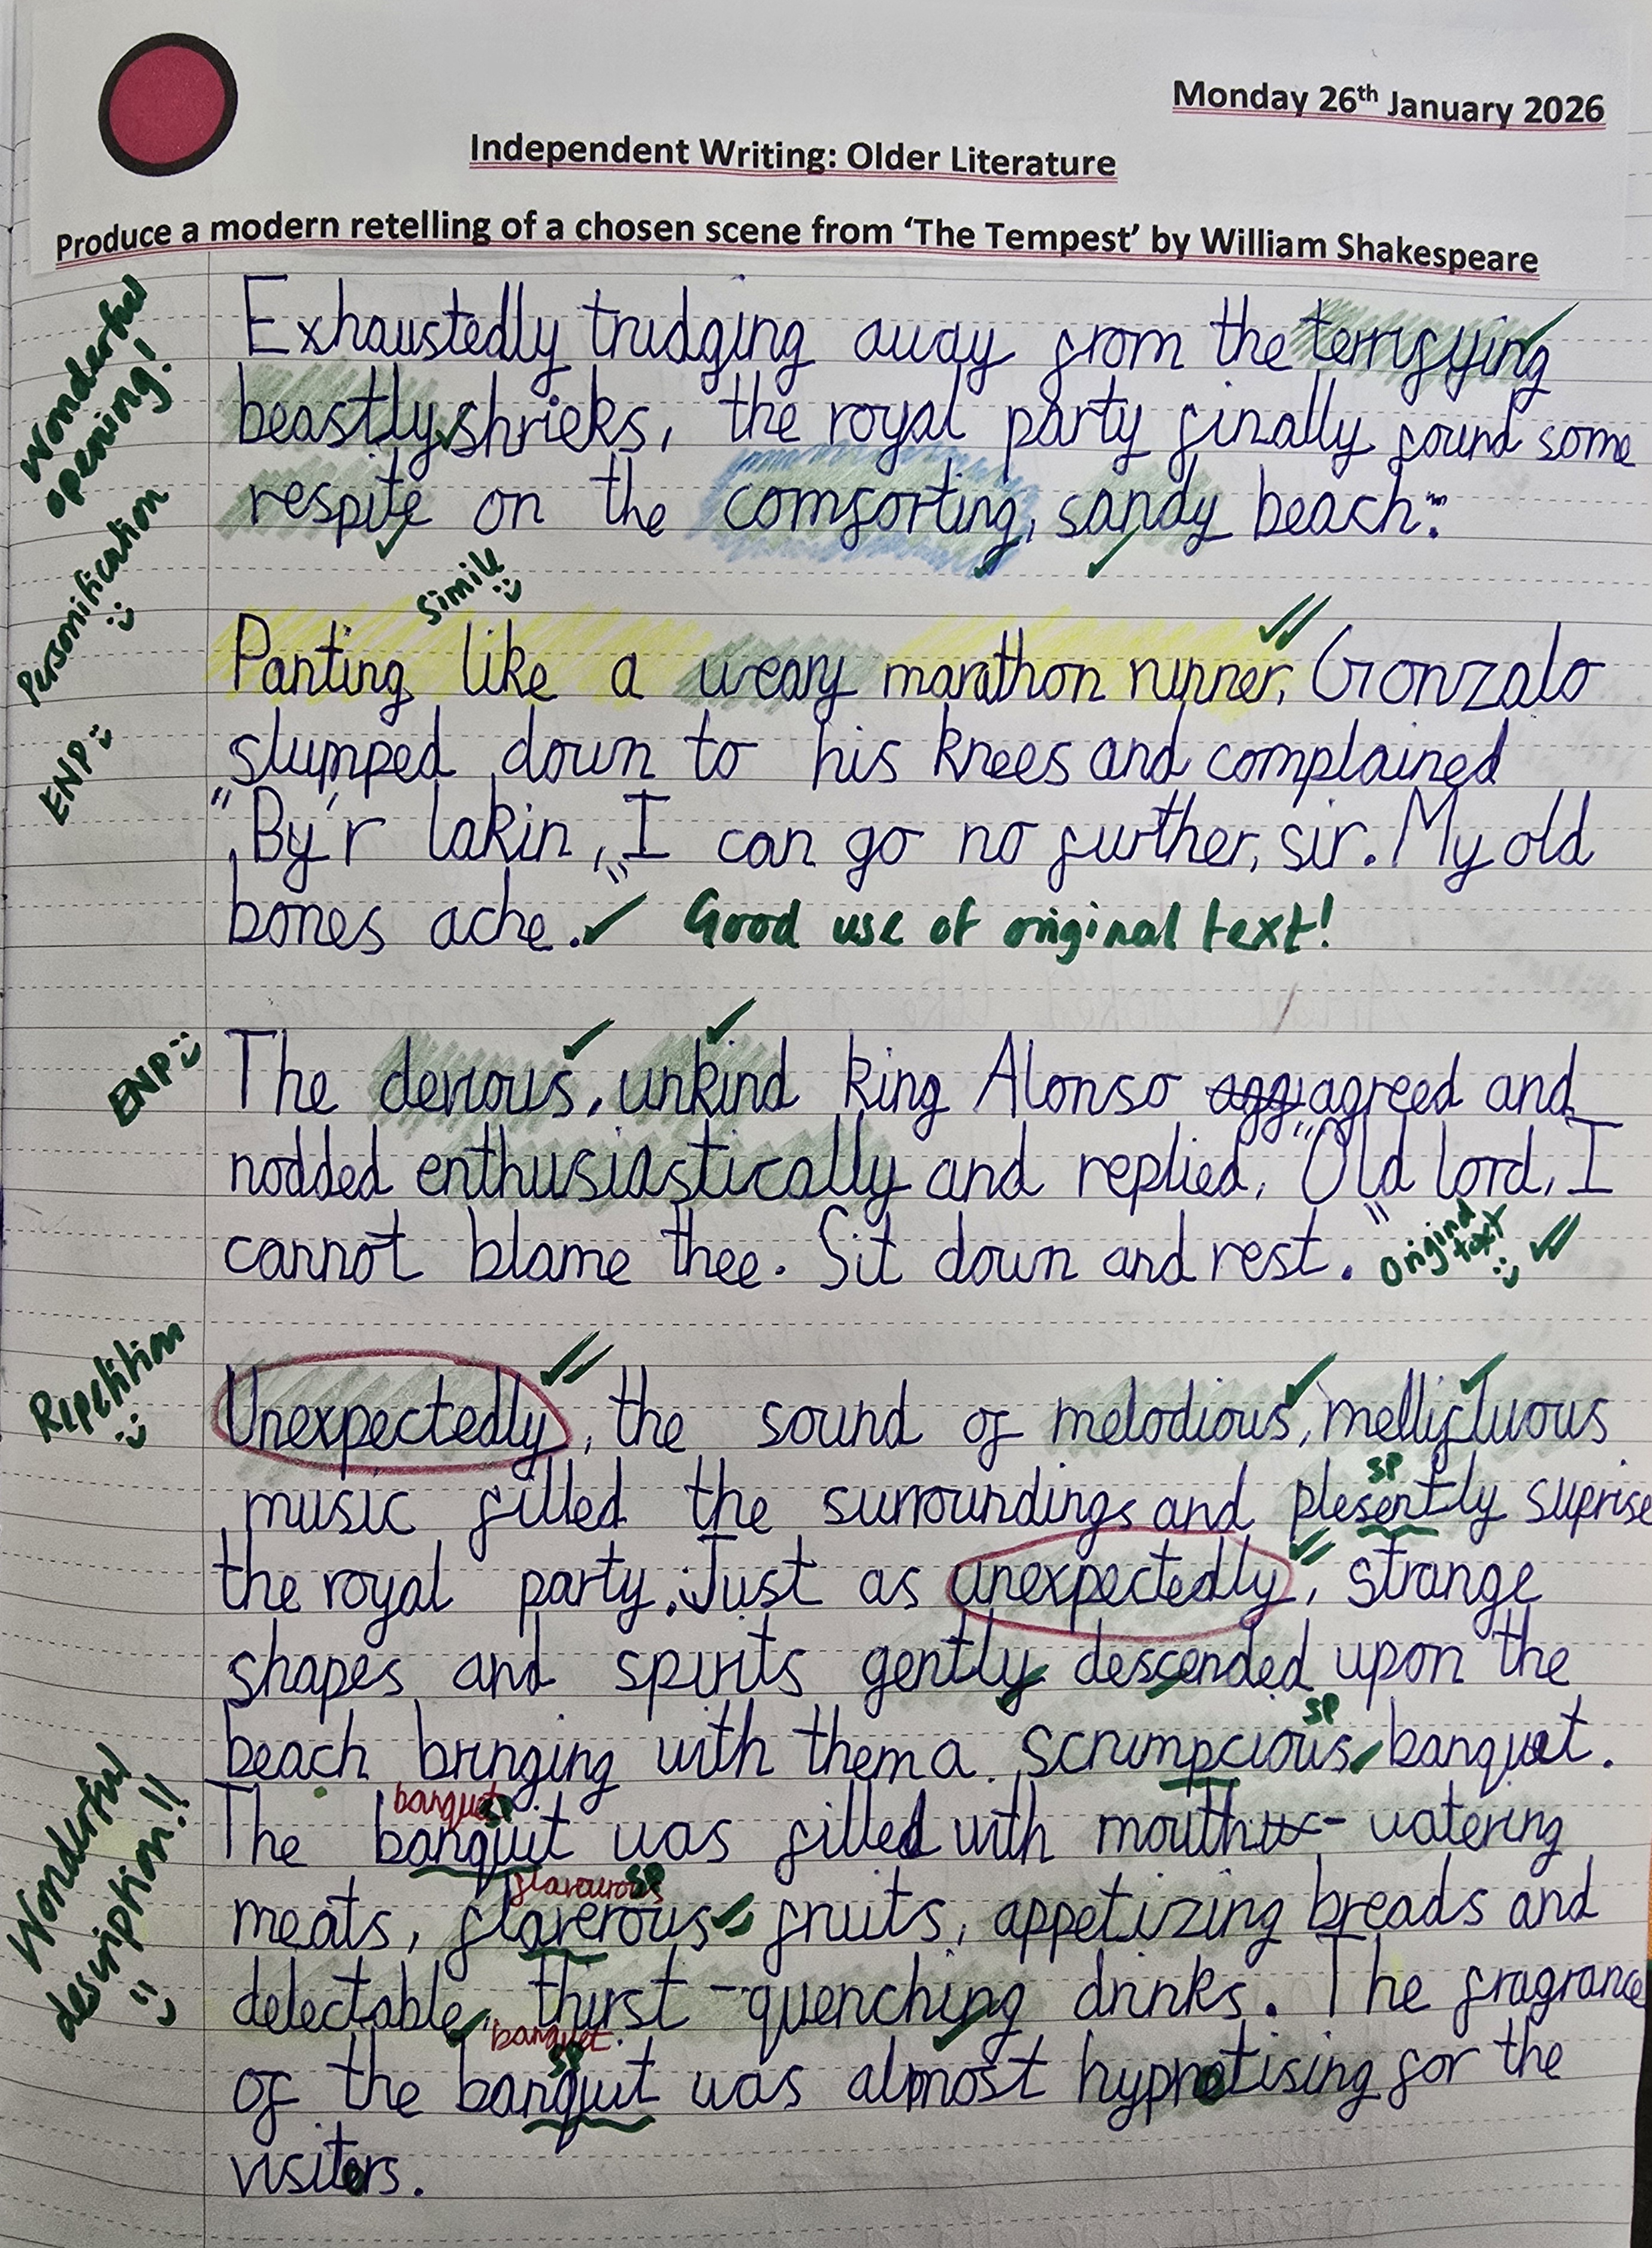 Monday 26th January 2026
Independent Writing: Older Literature
Produce a modern retelling of a chosen scene from ‘The Tempest’ by William Shakespeare
Wonderful opening!
Exhaustedly trudging away from the terrifying
beastly shrieks, the royal party finally found some
respite on the comforting, sandy beach.
Personification
Simile
Panting like a weary marathon runner, Gonzalo
ENP
slumped down to his knees and complained
"By'r lakin, I can go no further, sir. My old
bones ache." Good use of original text!
ENP
The devious, unkind king Alonso agreed and
nodded enthusiastically and replied, "Old lord, I
cannot blame thee. Sit down and rest." Original text
Repetition
Unexpectedly, the sound of melodious, mellifluous
SP
music filled the surroundings and plesently suprise
the royal party. Just as unexpectedly, strange
shapes and spirits gently descended upon the
SP
beach bringing with them a scrumpcious banquet.
Wonderful description!!
banquet SP
The banquit was filled with mouth-watering
flavourous SP
meats, flaverous fruits, appetizing breads and
delectable, thirst-quenching drinks. The fragrance
banquet SP
of the banquit was almost hypnotising for the
visitors.